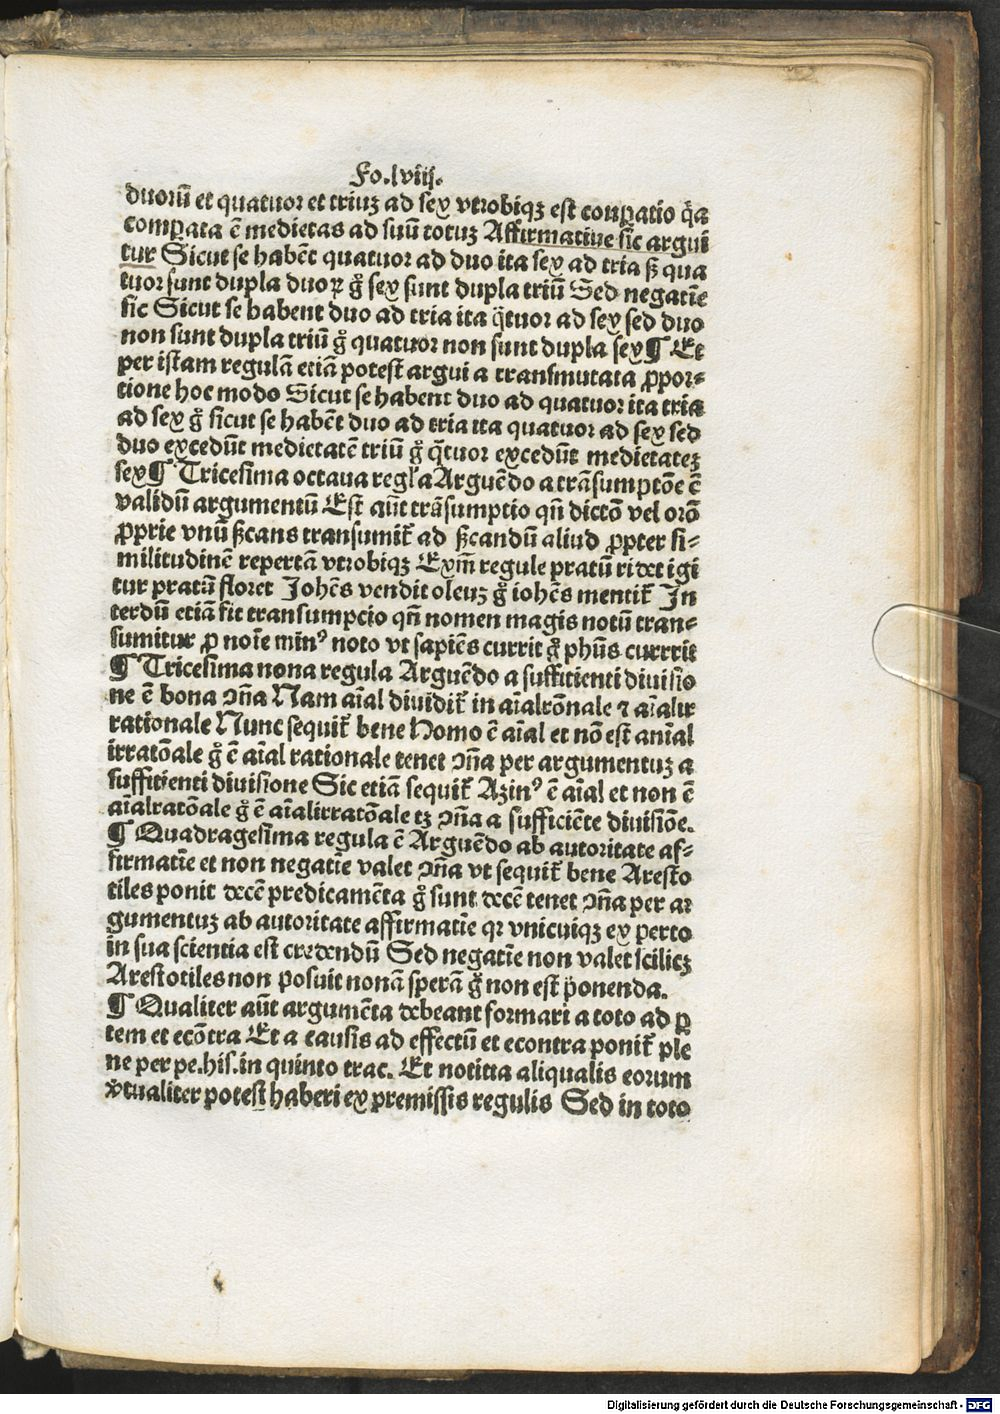 Fo.lviij.
duorū et quatuor et triuꝫ ad sex vtrobiqꝫ est conꝑatio q̄a
comꝑata ē medietas ad suū totuꝫ Affirmatiue sic argui
tur Sicut se habēt quatuor ad duo ita sex ad tria ſꝫ qua
tuor sunt dupla duoꝝ gͦ sex sunt dupla triū Sed negatīe
sic Sicut se habent duo ad tria ita q̄tuor ad sex sed duo
non sunt dupla triū gͦ quatuor non sunt dupla sex ¶ Et
per istam regulā etiā potest argui a transmutata ꝓpor⸗
tione hoc modo Sicut se habent duo ad quatuor ita tria
ad sex gͦ sicut se habēt duo ad tria ita quatuor ad sex sed
duo excedūt medietatē triū gͦ q̄tuor excedūt medietateꝫ
sex ¶ Tricesima octaua regl̓a Arguēdo a trāsumptōe ē
validū argumentū Est aūt trāsumptio qn̄ dictō vel orō
ꝓprie vnū ſꝫcans transumit̄ ad ſꝫcandū aliud ꝓpter si⸗
militudinē repertā vtrobiqꝫ Exm̄ regule pratū ridet igi
tur pratū floret Johēs vendit oleuꝫ gͦ iohēs mentit̄ In
terdū etiā fit transumpcio qn̄ nomen magis notū tran⸗
sumitur ꝓ noīe minꝰ noto vt sapiēs currit gͦ phūs currrit
¶ Tricesima nona regula Arguēdo a suffitienti diuisio
ne ē bona ↄn̄a Nam aīal diuidit̄ in aīalrōnale ⁊ aīalir
rationale Nunc sequit̄ bene Homo ē aīal et nō est anīal
irratōnale gͦ ē aīal rationale tenet ↄn̄a per argumentuꝫ a
suffitienti diuisione Sic etiā sequit̄ Azinꝰ ē aīal et non ē
aīalratōnale gͦ ē aīalirratōnale tꝫ ↄn̄a a sufficiēte diuisiōe.
¶ Quadragesima regula ē Arguēdo ab autoritate af⸗
firmatīe et non negatīe valet ↄn̄a vt sequit̄ bene Aresto
tiles ponit decē predicamēta gͦ sunt decē tenet ↄn̄a per ar
gumentuꝫ ab autoritate affirmatīe qꝛ vnicuiqꝫ ex perto
in sua scientia est credendū Sed negatīe non valet scilicꝫ
Arestotiles non posuit nonā sperā gͦ non est p̄onenda.
¶ Qualiter aūt argumēta debeant formari a toto ad ꝑ
tem et ecōtra Et a causis ad effectū et econtra ponit̄ ple
ne per pe.his.in quinto trac. Et notitia aliqualis eorum
v̓tualiter potest haberi ex premissis regulis Sed in toto
Digitalisierung gefördert durch die Deutsche Forschungsgemeinschaft - DFG